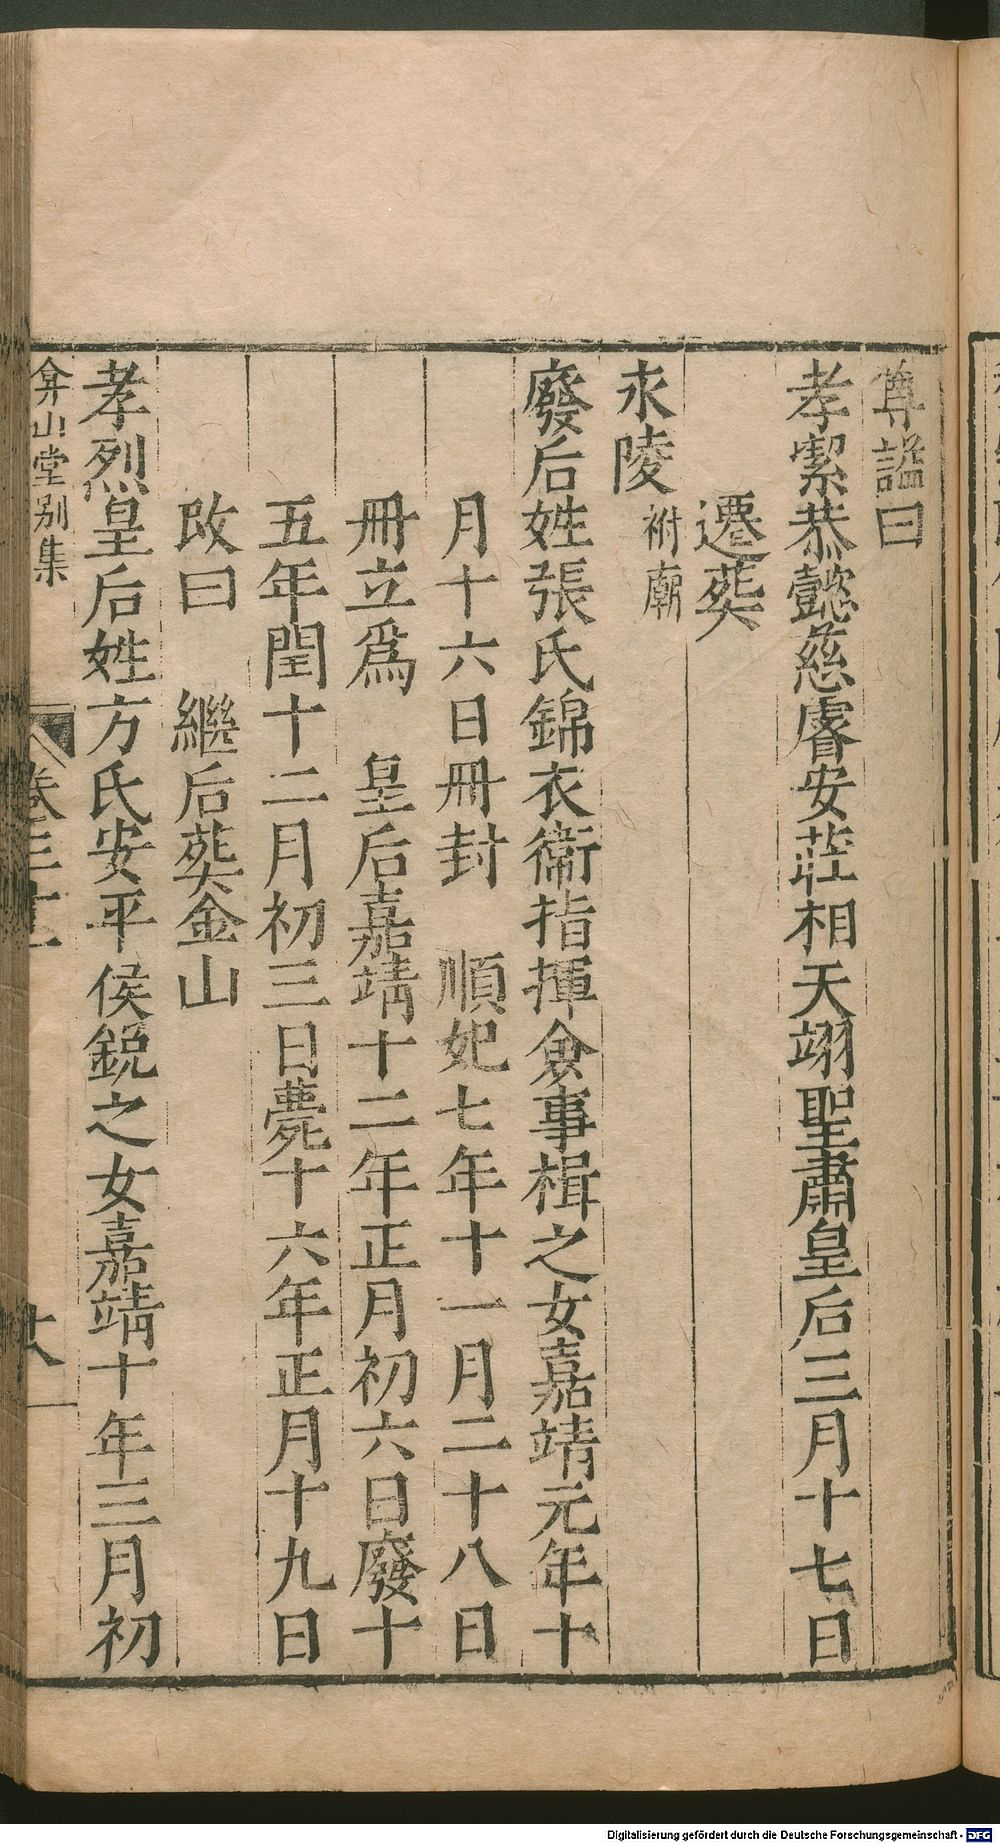 尊謚曰
孝潔恭懿慈睿安莊相天翊聖肅皇后三月十七日
遷葬
永陵祔廟
廢后姓張氏錦衣衛指揮僉事楫之女嘉靖元年十
月十六日冊封 順妃七年十一月二十八日
冊立爲 皇后嘉靖十二年正月初六日廢十
五年閏十二月初三日薨十六年正月十九日
改曰 繼后葬金山
孝烈皇后姓方氏安平侯銳之女嘉靖十年三月初
弇山堂别集 卷三十一 十八
Digitalisierung gefördert durch die Deutsche Forschungsgemeinschaft - DFG